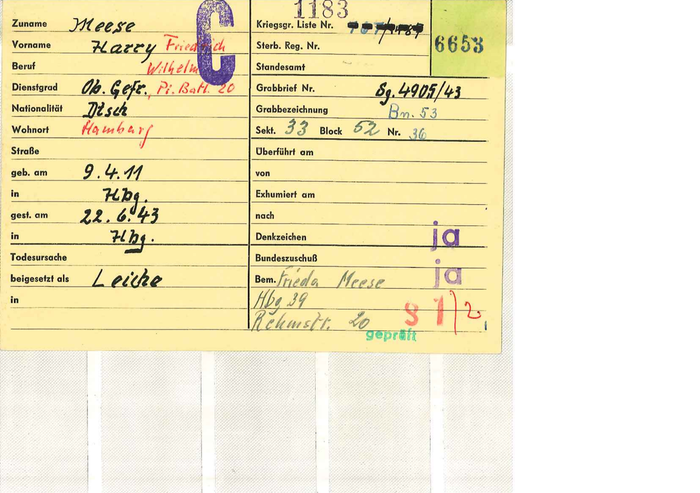 1183
Zuname Meese
Vorname Harry Friedrich
Wilhelm
Beruf
Dienstgrad Ob. Gefr., Pi. Batl. 20
Nationalität Dtsch
Wohnort Hamburg
Straße
geb. am 9.4.11
in Hbg.
gest. am 22.6.43
in Hbg.
Todesursache
beigesetzt als Leiche
in
C
Kriegsgr. Liste Nr.
6653
Sterb. Reg. Nr.
Standesamt
Grabbrief Nr. Sg. 4905/43
Grabbezeichnung Bn. 53
Sekt. 33 Block 52 Nr. 36
Überführt am
von
Exhumiert am
nach
Denkzeichen ja
Bundeszuschuß ja
Bem. Frieda Meese
Hbg 39
Rehmstr. 20
81/2
geprüft